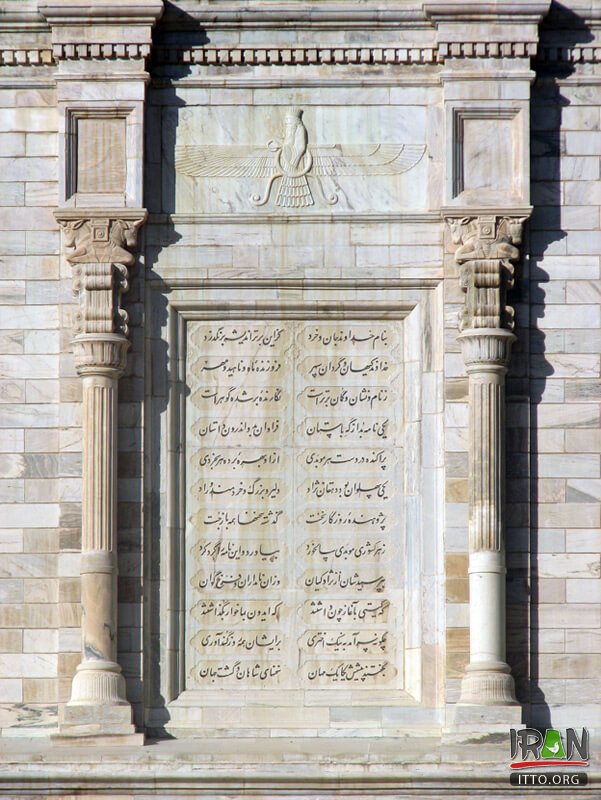 بنام خداوند جان و خرد کزین برتر اندیشه برنگذرد
خداوند کیهان و گردان سپهر فروزنده ماه و ناهید و مهر
ز نام و نشان و گمان برتر است نگارنده بر شده گوهر است
یکی نامه بد از گه باستان فراوان بدو اندرون داستان
پراکنده در دست هر موبدی ازو بهره برده هر بخردی
یکی پهلوان بود دهقان نژاد دلیر و بزرگ و خردمند و راد
پژوهنده روزگار نخست گذشته سخنها همه باز جست
ز هر کشوری موبدی سالخورد بیاورد و این نامه را گرد کرد
بپرسیدشان از نژاد کیان وزان نامداران و فرخ گوان
که گیتی به آغاز چون داشتند که ایدون بما خوار بگذاشتند
چگونه سرآمد به نیک اختری بر ایشان همه روز کندآوری
بگفتند پیشش یکایک مهان سخنهای شاهان و گشت جهان
IRAN
ITTO.ORG